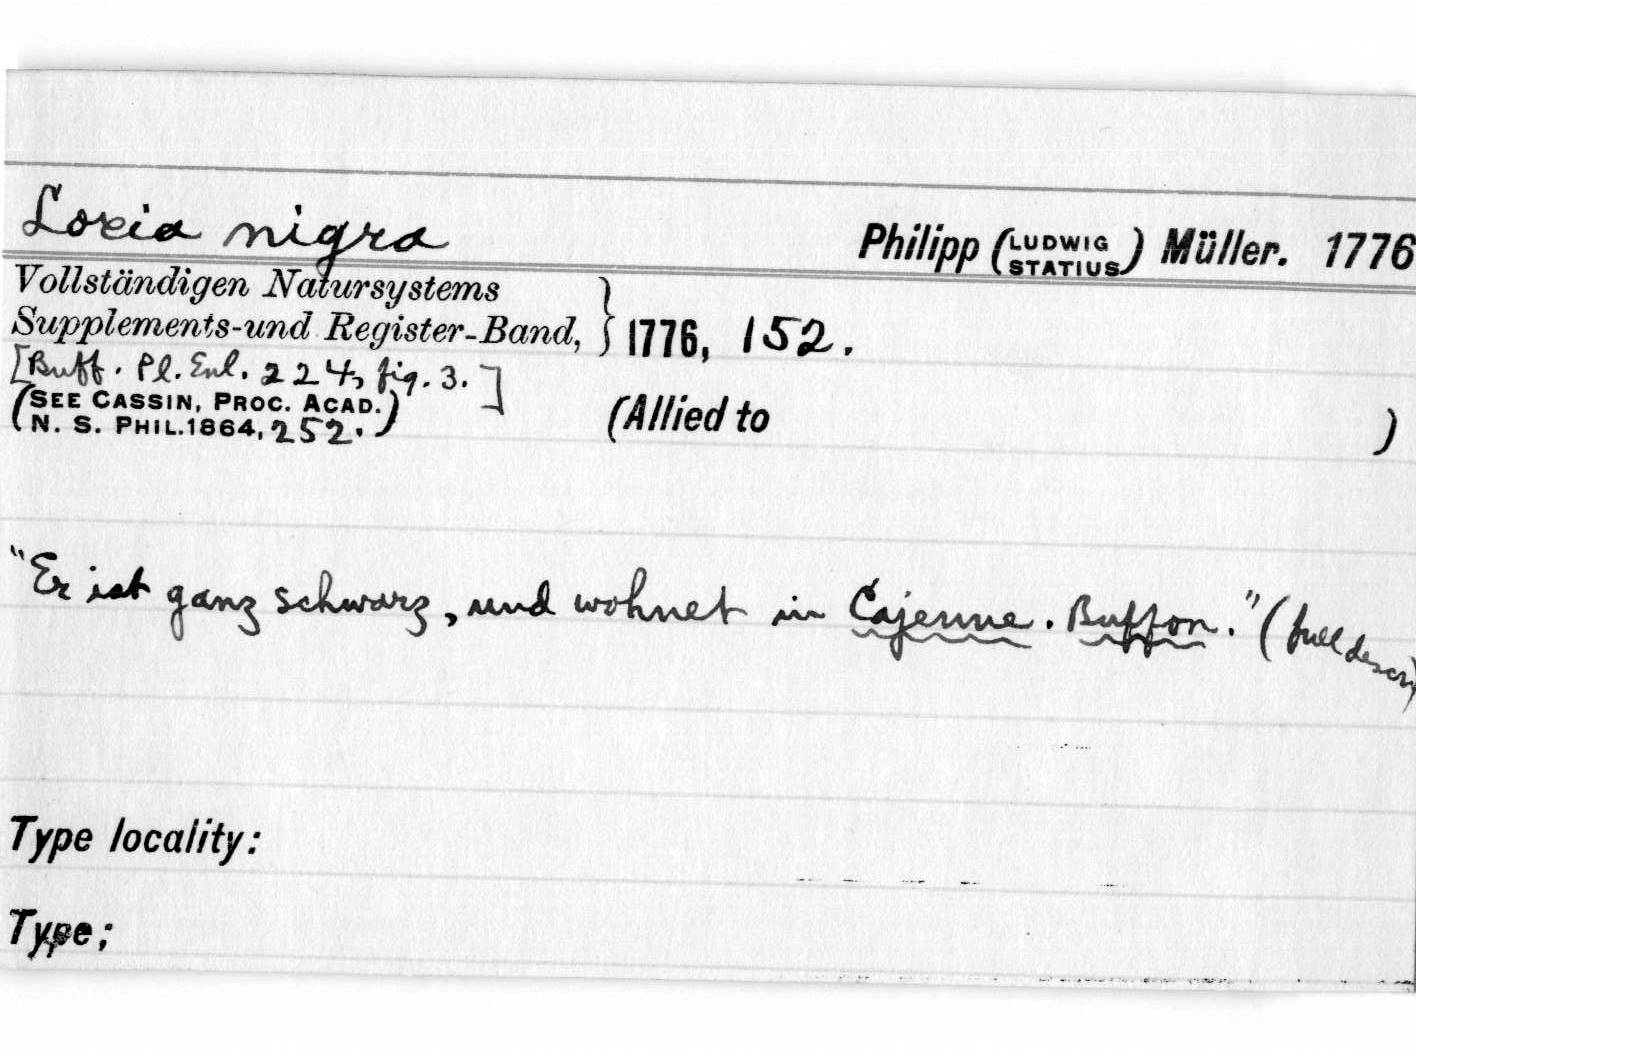 Loxia nigra Philipp (LUDWIG STATIUS) Müller. 1776
Vollständigen Natursystems
Supplements-und Register-Band, } 1776, 152.
[Buff. Pl. Enl. 224, fig. 3.]
(SEE CASSIN, PROC. ACAD.
N. S. PHIL. 1864, 252.) (Allied to )
"Er ist ganz schwarz, und wohnet in Cajenne. Buffon." (full descr
Type locality:
Type;